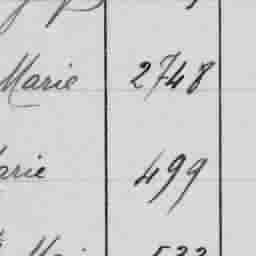 Marie 2748
arie 499
533